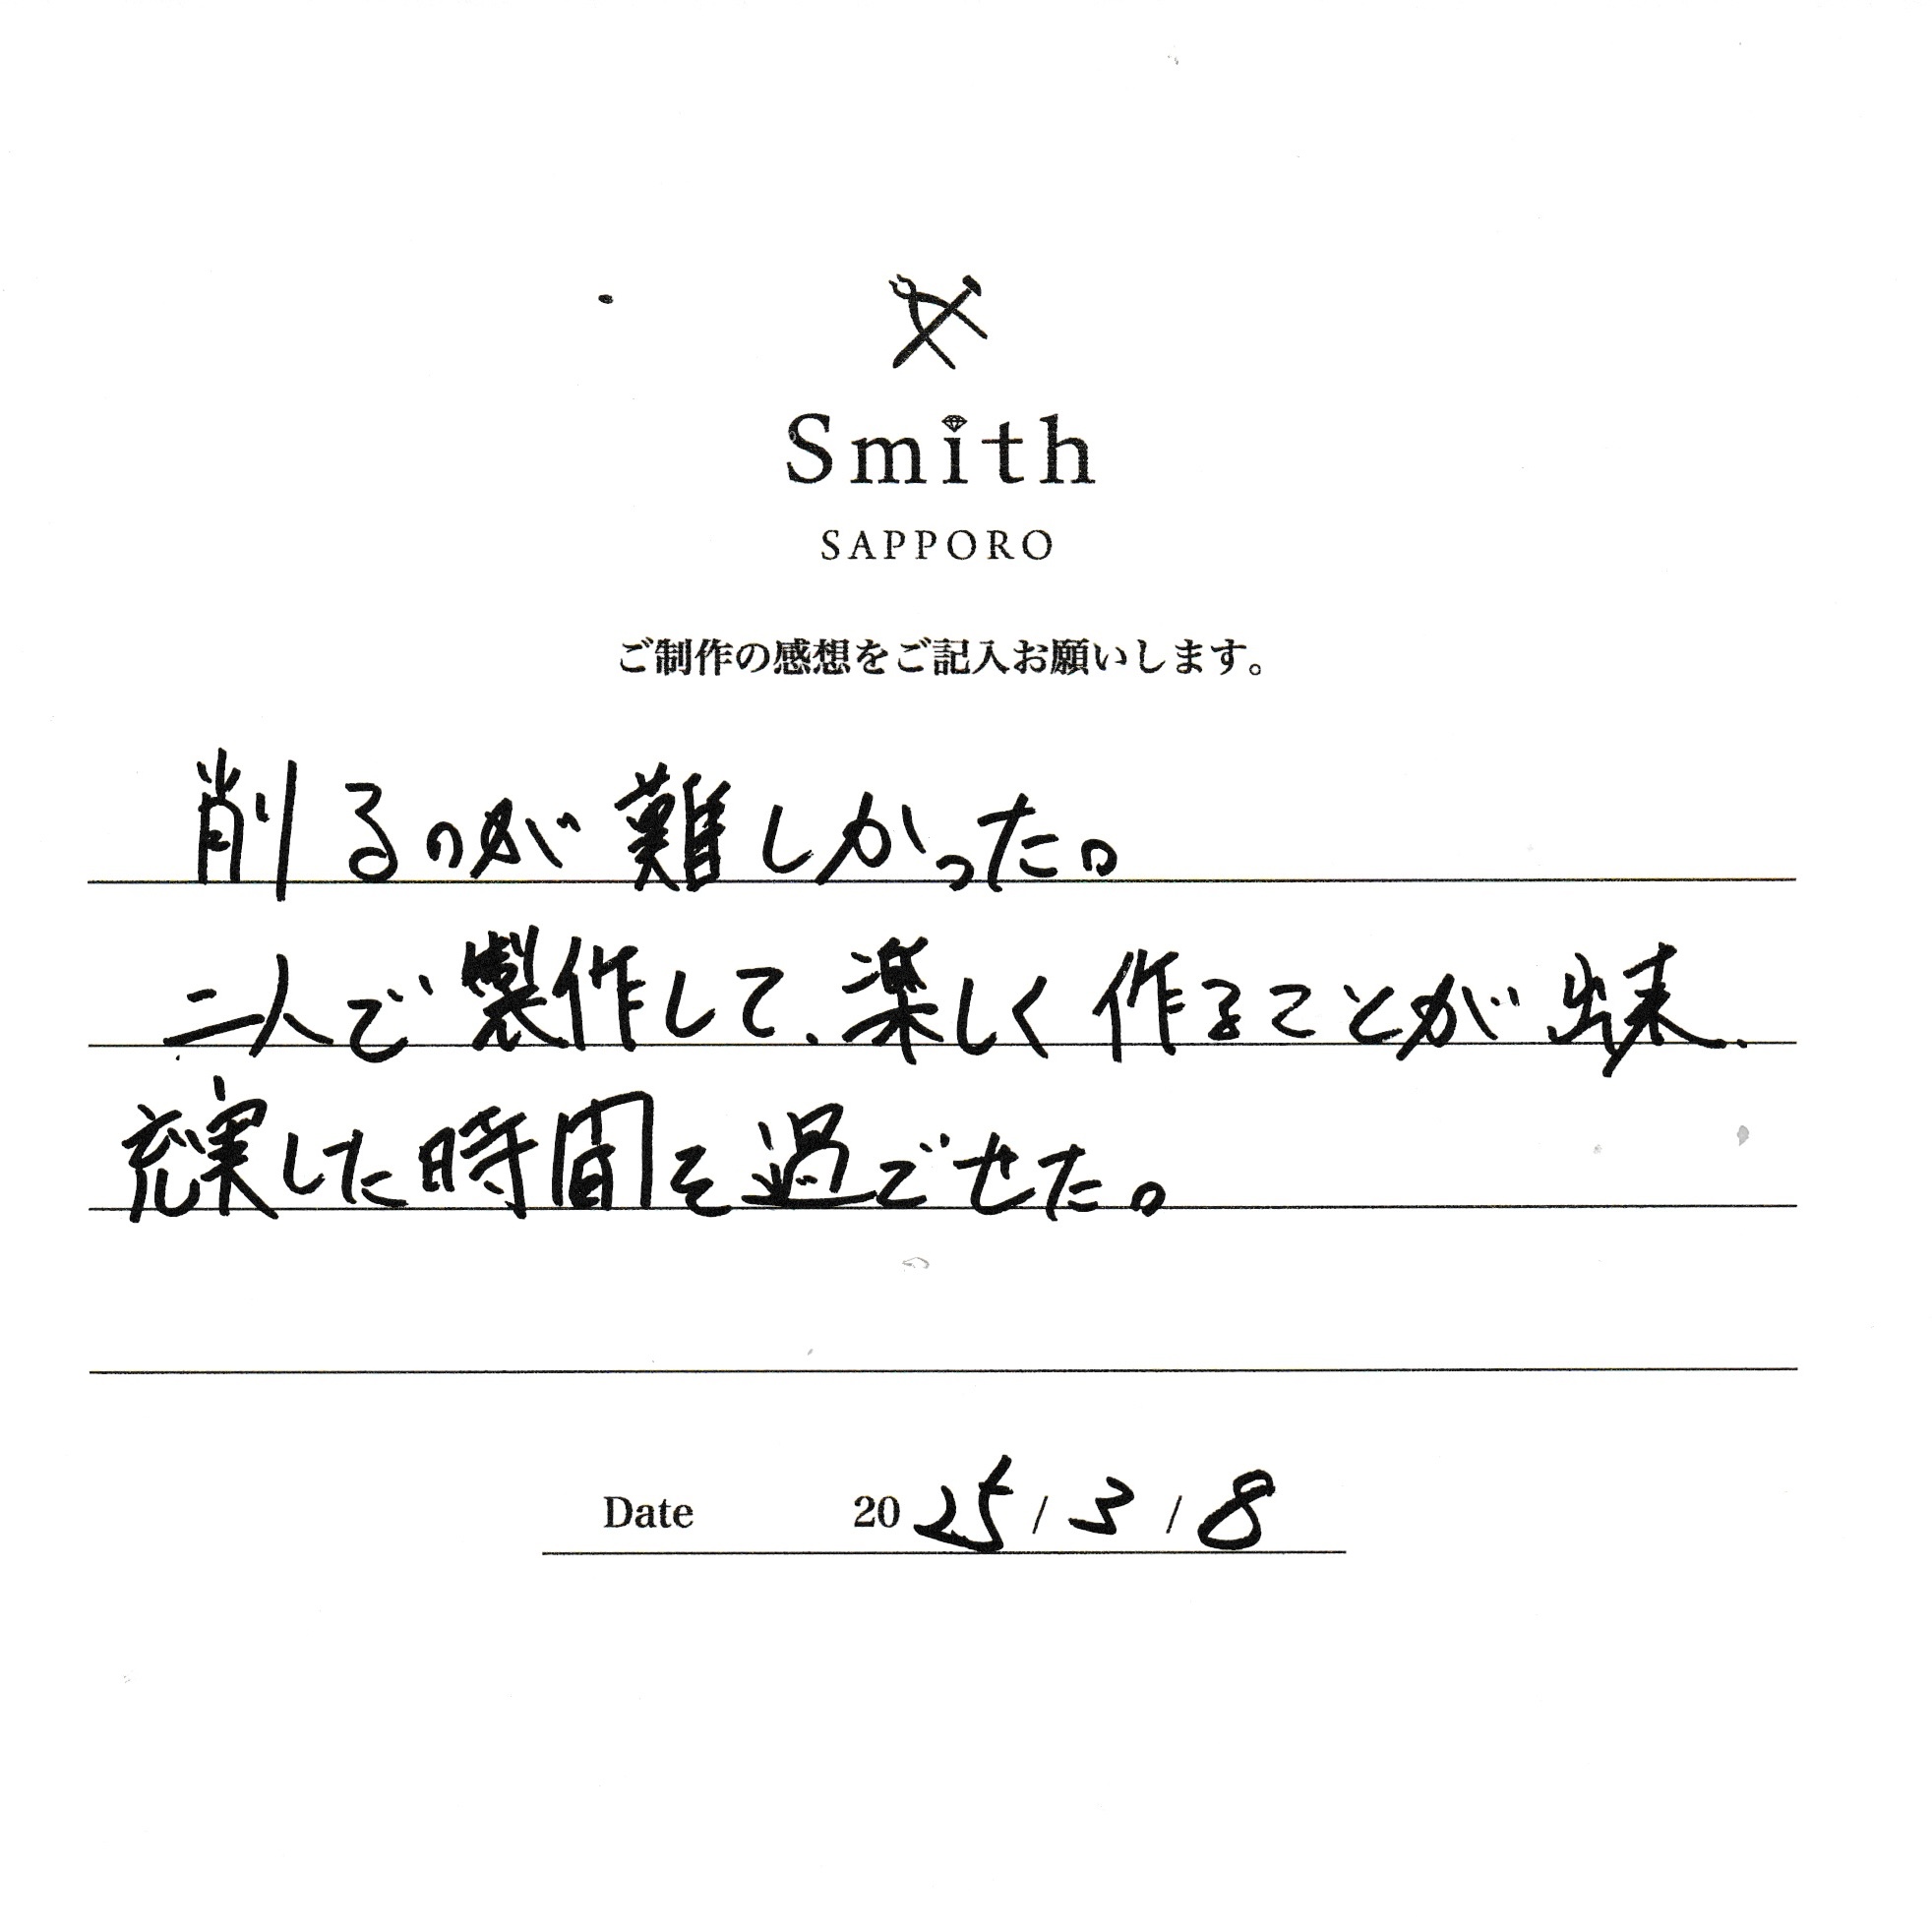 Smith
SAPPORO
ご制作の感想をご記入お願いします。
削るのが難しかった。
二人で製作して、楽しく作ることが出来、
充実した時間を過ごせた。
Date 2025/3/8